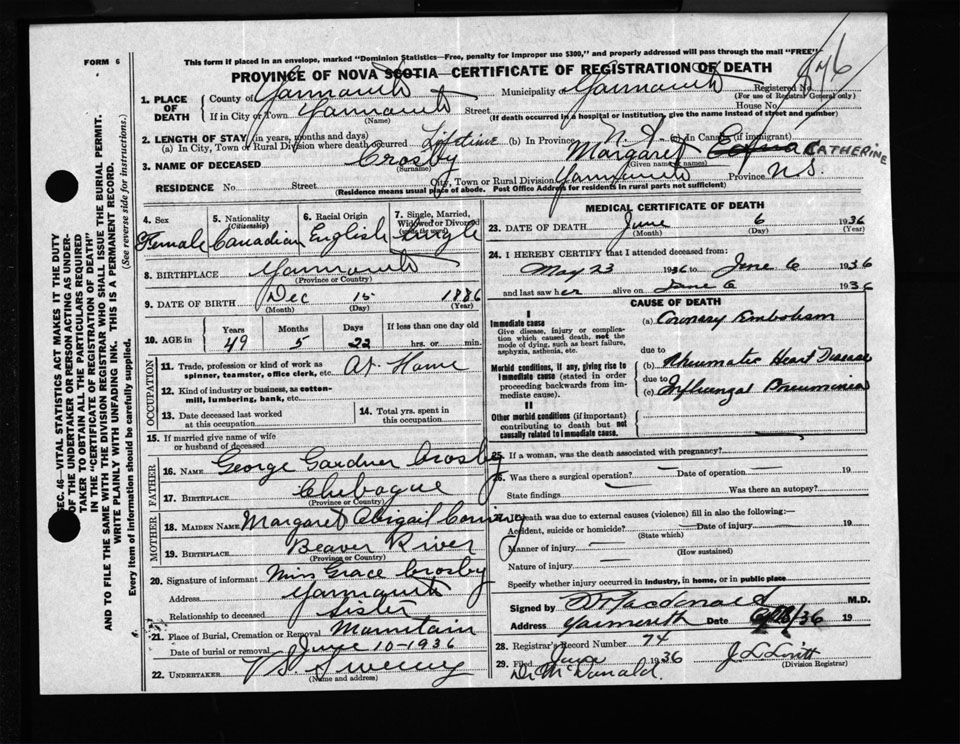 FORM 6
This form if placed in an envelope, marked "Dominion Statistics—Free, penalty for improper use $300," and properly addressed will pass through the mail "FREE"
PROVINCE OF NOVA SCOTIA—CERTIFICATE OF REGISTRATION OF DEATH
1. PLACE OF DEATH County of Yarmouth Municipality Yarmouth Registered No.
(For use of Registrar General only)
If in City or Town Yarmouth Street House No.
(Name) (If death occurred in a hospital or institution, give the name instead of street and number)
2. LENGTH OF STAY (in years, months and days)
(a) In City, Town or Rural Division where death occurred Lifetime (b) In Province N.S. (c) In Canada (if immigrant)
3. NAME OF DECEASED Crosby Margaret Edna CATHERINE
(Surname) (Given name or names)
RESIDENCE No. Street City, Town or Rural Division Yarmouth Province N.S.
(Residence means usual place of abode. Post Office Address for residents in rural parts not sufficient)
4. Sex Female
5. Nationality (Citizenship) Canadian
6. Racial Origin English
7. Single, Married, Widowed or Divorced (write the word) Single
8. BIRTHPLACE Yarmouth
(Province or Country)
9. DATE OF BIRTH Dec 15 1886
(Month) (Day) (Year)
10. AGE in Years 49 Months 5 Days 22 If less than one day old hrs. or min.
OCCUPATION
11. Trade, profession or kind of work as spinner, teamster, office clerk, etc. At Home
12. Kind of industry or business, as cotton-mill, lumbering, bank, etc.
13. Date deceased last worked at this occupation
14. Total yrs. spent in this occupation
15. If married give name of wife or husband of deceased
FATHER
16. NAME George Gardner Crosby
17. BIRTHPLACE Chebogue
(Province or Country)
MOTHER
18. MAIDEN NAME Margaret Abigail Corning
19. BIRTHPLACE Beaver River
(Province or Country)
20. Signature of informant Miss Grace Crosby
Address Yarmouth
Relationship to deceased Sister
21. Place of Burial, Cremation or Removal Mountain
Date of burial or removal June 10-1936
22. UNDERTAKER V S Sweeny
(Name and address)
MEDICAL CERTIFICATE OF DEATH
23. DATE OF DEATH June 6 1936
(Month) (Day) (Year)
24. I HEREBY CERTIFY that I attended deceased from:
May 23 1936 to June 6 1936
and last saw her alive on June 6 1936
CAUSE OF DEATH
I
Immediate cause
Give disease, injury or complication which caused death, not the mode of dying, such as heart failure, asphyxia, asthenia, etc.
(a) Coronary Embolism
due to
Morbid conditions, if any, giving rise to immediate cause (stated in order proceeding backwards from immediate cause).
(b) Rheumatic Heart Disease
due to
(c) Influenzal Pneumonia
II
Other morbid conditions (if important) contributing to death but not causally related to immediate cause.
25. If a woman, was the death associated with pregnancy?
26. Was there a surgical operation? Date of operation 19
State findings Was there an autopsy?
death was due to external causes (violence) fill in also the following:—
Accident, suicide or homicide? Date of injury 19
(State which)
Manner of injury
(How sustained)
Nature of injury
Specify whether injury occurred in industry, in home, or in public place
Signed by Macdonald M.D.
Address Yarmouth Date /36 19
28. Registrar's Record Number 74
29. Filed June 1936
(Division Registrar)
Dr McDonald.
SEC. 46—VITAL STATISTICS ACT MAKES IT THE DUTY
OF THE UNDERTAKER OR PERSON ACTING AS UNDER-
TAKER TO OBTAIN ALL THE PARTICULARS REQUIRED
IN THE "CERTIFICATE OF REGISTRATION OF DEATH"
AND TO FILE THE SAME WITH THE DIVISION REGISTRAR WHO SHALL ISSUE THE BURIAL PERMIT.
WRITE PLAINLY WITH UNFADING INK. THIS IS A PERMANENT RECORD.
Every item of information should be carefully supplied. (See reverse side for instructions.)